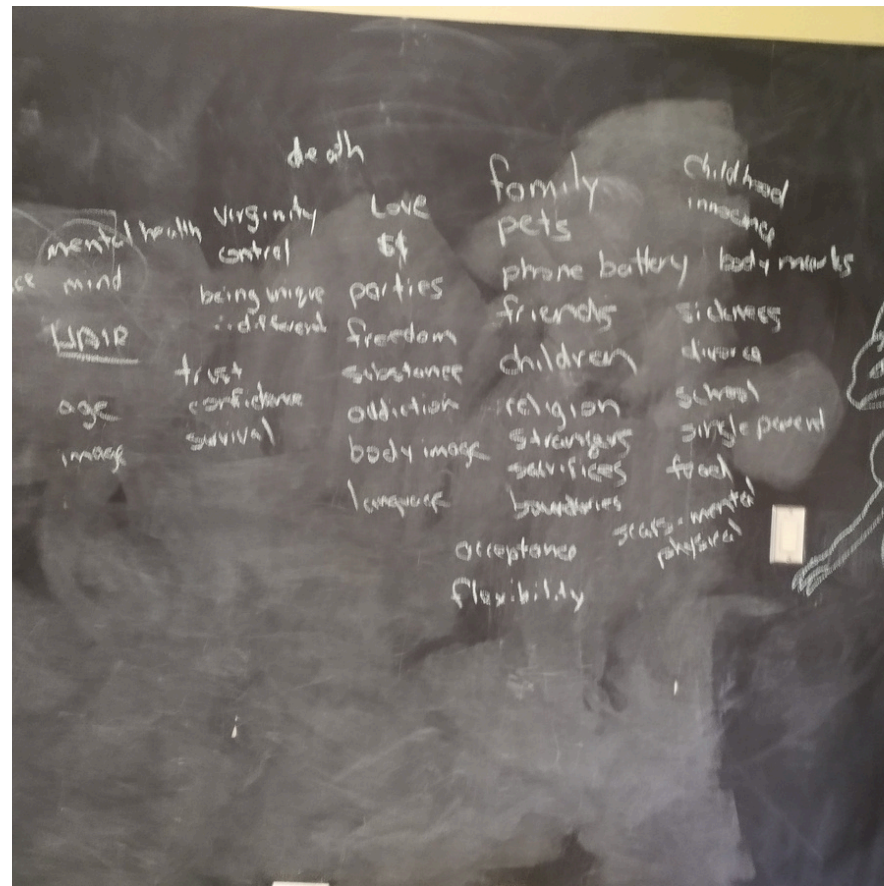 death
mental health
mind
HAIR
age
image
virginity
control
being unique
different
trust
confidence
survival
Love
$$
parties
freedom
substance
addiction
body image
language
family
pets
phone battery
friends
children
religion
strangers
sacrifices
boundaries
acceptance
flexibility
childhood
innocence
body marks
sickness
divorce
school
single parent
food
scars - mental
physical